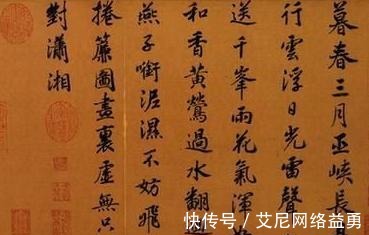 暮春三月巫峡長
行雲浮日光雷聲
送千峯雨花氣渾
和香黄鶯過水翻
燕子銜泥濕不妨飛
捲簾圖畫裏虚無只
對瀟湘
快传号／艾尼网络益勇